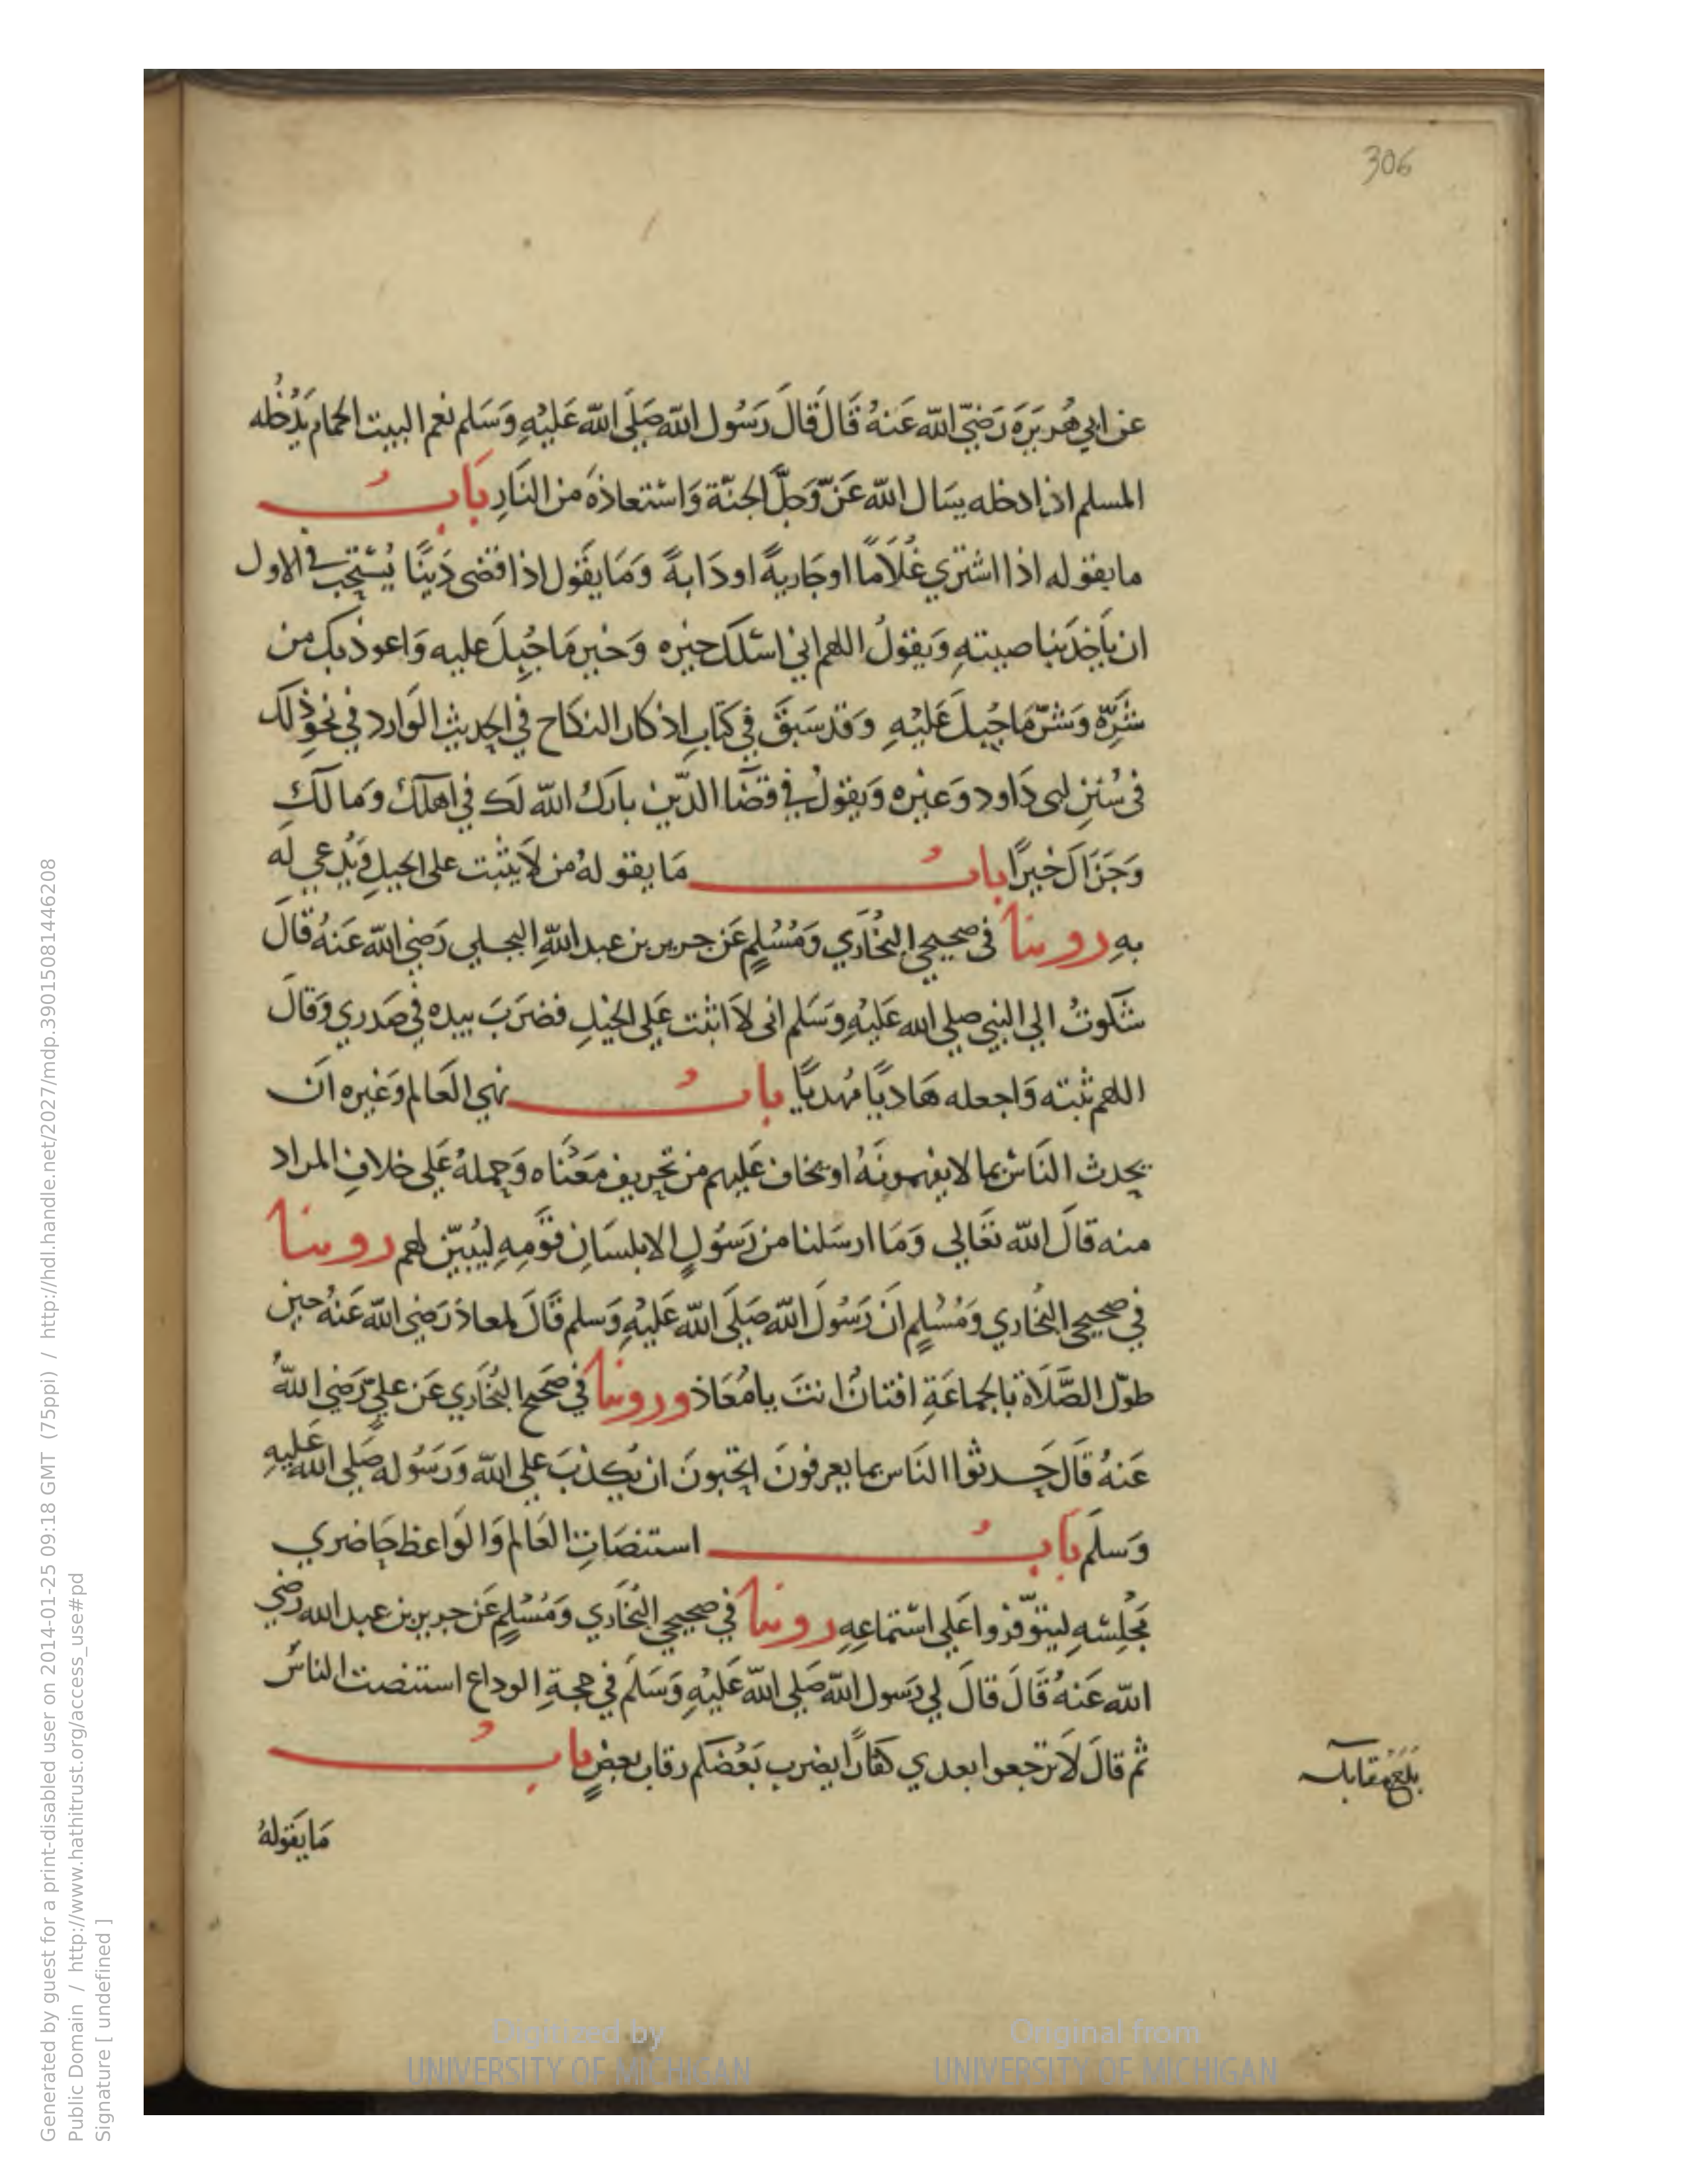 306
عن ابي هُريَرَه رَضِيّ الله عَنهُ قَالَ قَالَ رَسُول الله صَلَى الله عَليْهِ وَسَلم نعم البيت الحمام يَدْخُله
المسلم اذا دخله يسَال الله عَزّ وَجلَّ الجنّة وَاسْتعاذهُ من النَارِ بَابُ
ما يقوله اذا اشتري غُلَامًا او جَاريةً او دَابةً وَمَا يقَول اذا قضى دَينًا يُسْتحَب في الاول
ان يَاخذ بناصيتهِ وَيقولُ اللهم اني اسئلك خيره وَخير مَا جُبِلَ عليه وَاعوذ بك من
شرّه وَشرّ مَا جُبلَ عَليْهِ وَقد سَبقَ في كتَابِ اذكار النكاح في الحديث الوَارد في نحو ذلك
في سُننِ ابى دَاود وَغيره وَيقولُ في قضَا الدّين بارَكَ الله لَك في اهلكَ وَمالكَ
وَجَزَاكَ خَيرًا بابُ مَا يقولهُ من لَا يثبت على الخيلِ وَيُدعي لَه
بهِ روينا في صحيحي البُخَاري وَمُسْلمٍ عَن جرير بن عبد اللهِ البجلي رَضي الله عَنهُ قالَ
شكَوتُ الي النبي صلي الله عَليْهِ وَسَلم اني لَا اثبت عَلي الخيْلِ فضرَبَ بيده في صَدري وَقالَ
اللهم ثبته وَاجعله هَاديًا مهديًا بابُ نهي العَالم وَغيره اَن
يحدث النَاسْ بما لا يفهمونَهُ او يخاف عَليهم من تحريف مَعْناه وَحملهُ عَلي خلافِ المراد
منه قالَ الله تعَالي وَمَا ارسَلنا من رَسُولٍ الا بلسَانِ قوَمهِ ليُبيّن لهم روينا
في صحيحي البُخاري وَمُسْلمٍ اَن رَسُولَ الله صَلَى الله عَليْهِ وَسلم قَالَ لمعاذ رَضي الله عَنهُ حين
طوّل الصَّلَاة بالجماعَةِ افتانٌ انتَ يا مُعَاذ وروينا في صَحيح البُخَاري عَن عليٍ رَضي اللهُ
عَنهُ قَالَ حَدثوا النَاس بما يعرفونَ اتحبونَ ان يُكذبَ علي الله وَرَسُوله صَلي الله عَليهِ
وَسلَم بَابُ استنصَاتِ العَالم وَالوَاعظ حَاضري
مَجْلِسْهِ ليتوّفروا عَلي اسْتماعِهِ روينا في صحيحي البُخَاري وَمُسْلمٍ عَن جرير بن عبد الله رضي
الله عَنهُ قَالَ قالَ لي رَسول الله صَلي الله عَليْهِ وَسَلَم في حجةِ الوداع استنصت الناسَ
ثم قالَ لَا ترجعوا بعدي كفارًا يضرب بَعْضكم رقاب بعضٍ باب
بَلغَ مقابلة
مَا يقَولهُ
Digitized by
UNIVERSITY OF MICHIGAN
Original from
UNIVERSITY OF MICHIGAN
Generated by guest for a print-disabled user on 2014-01-25 09:18 GMT (75ppi) / http://hdl.handle.net/2027/mdp.39015081446208
Public Domain / http://www.hathitrust.org/access_use#pd
Signature [ undefined ]